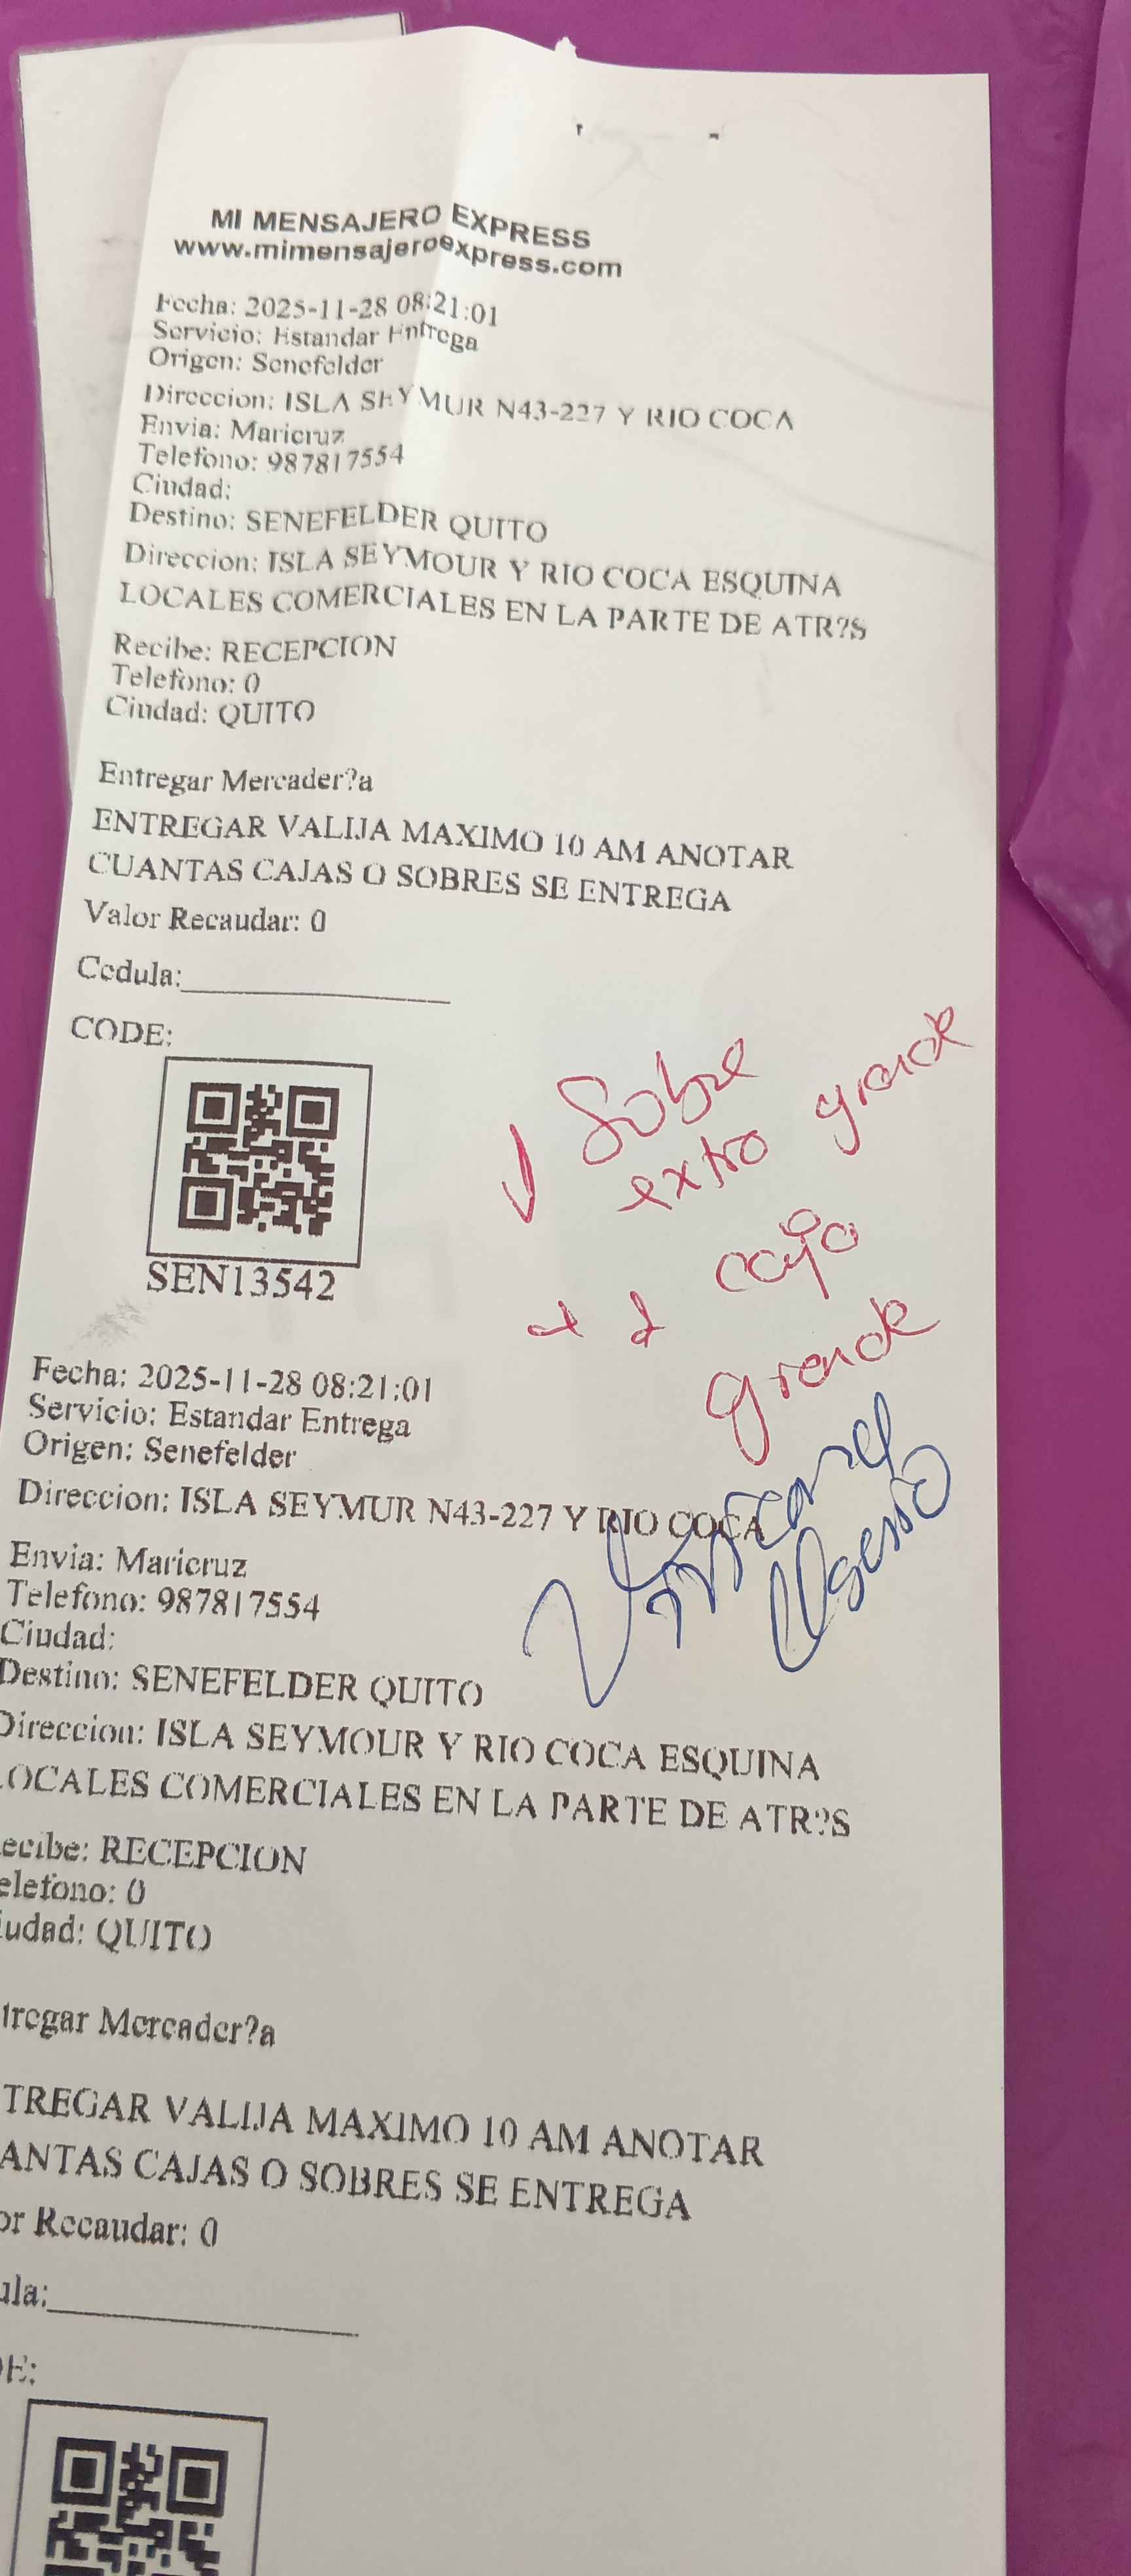 MI MENSAJERO EXPRESS
www.mimensajeroexpress.com
Fecha: 2025-11-28 08:21:01
Servicio: Estandar Entrega
Origen: Senefelder
Direccion: ISLA SEYMUR N43-227 Y RIO COCA
Envia: Maricruz
Telefono: 987817554
Ciudad:
Destino: SENEFELDER QUITO
Direccion: ISLA SEYMOUR Y RIO COCA ESQUINA
LOCALES COMERCIALES EN LA PARTE DE ATR?S
Recibe: RECEPCION
Telefono: 0
Ciudad: QUITO
Entregar Mercader?a
ENTREGAR VALIJA MAXIMO 10 AM ANOTAR
CUANTAS CAJAS O SOBRES SE ENTREGA
Valor Recaudar: 0
Cedula:
CODE:
Sobre
extra grande
caja
grande
SEN13542
Fecha: 2025-11-28 08:21:01
Servicio: Estandar Entrega
Origen: Senefelder
Direccion: ISLA SEYMUR N43-227 Y RIO COCA
Envia: Maricruz
Telefono: 987817554
Ciudad:
Destino: SENEFELDER QUITO
Direccion: ISLA SEYMOUR Y RIO COCA ESQUINA
LOCALES COMERCIALES EN LA PARTE DE ATR?S
ecibe: RECEPCION
elefono: 0
iudad: QUITO
tregar Mercader?a
TREGAR VALIJA MAXIMO 10 AM ANOTAR
ANTAS CAJAS O SOBRES SE ENTREGA
or Recaudar: 0
ula:
DE: